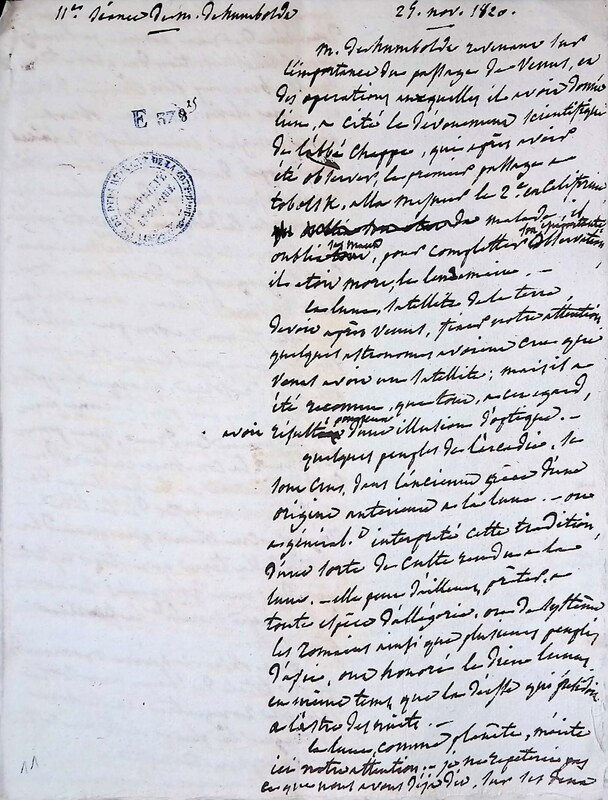 11e. séance de m. de humboldt
25. nov. 1820.
m. de humboldt revenant sur
l'importance du passage de Venus, et
des operations auxquelles il avoit donné
lieu, a cité le dévouement scientifique
de l'abbé Chappe, qui après avoir
été observer, le premier passage a
tobolsk, alla mesurer le 2e. en Californie
malade, il
oublia ses maux, pour completter son observation
il étoit mort, le lendemain. —
la lune, satellite de la terre
devoit après Venus, fixer notre attention
quelques astronomes avoient cru que
Venus avoit un satellite; mais il a
été reconnu, que tout, a cet égard,
avoit résulté d'une illusion d'optique. —
quelques peuples de l'arcadie, se
sont crus, dans l'ancienne grèce d'une
origine anterieure a la lune. — on a
en général.t interprété cette tradition
d'une sorte de culte rendu a la
lune. — elle peut d'ailleurs, prêter, a
toute espèce d'allégorie, ou de système
les romains ainsi que plusieurs peuples
d'asie, ont honoré le dieu lunus,
en même temps que la déesse qui préside
a l'astre des nuits. —
la lune, comme planète, mérite
ici notre attention; — je ne repeterai pas
ce que nous avons déjà dit, sur ses deux
E 578
25
11